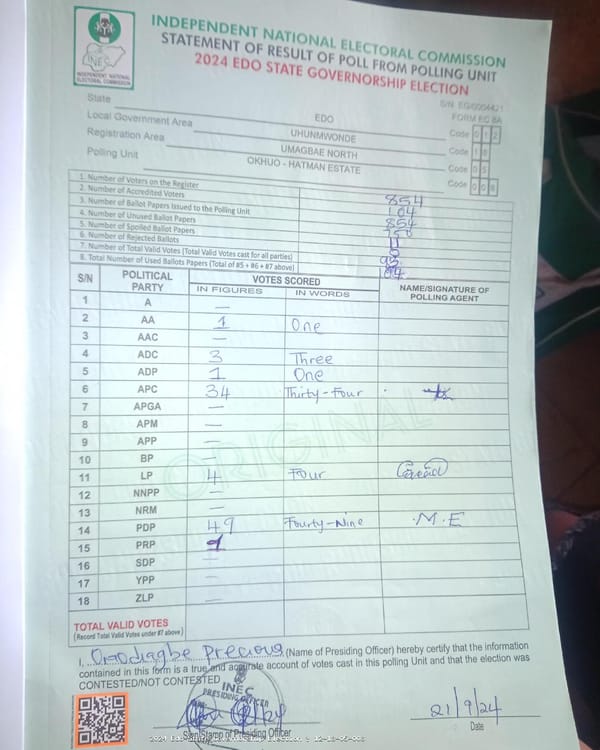 INEC
INDEPENDENT NATIONAL ELECTORAL COMMISSION
INDEPENDENT NATIONAL ELECTORAL COMMISSION
STATEMENT OF RESULT OF POLL FROM POLLING UNIT
2024 EDO STATE GOVERNORSHIP ELECTION
FORM EC 8A
State EDO Code 0 1 2
Local Government Area UHUNMWONDE Code 1 8
Registration Area UMAGBAE NORTH Code 0 5
Polling Unit OKHUO - HATMAN ESTATE Code
1. Number of Voters on the Register 854
2. Number of Accredited Voters 104
3. Number of Ballot Papers Issued to the Polling Unit 854
4. Number of Unused Ballot Papers 750
5. Number of Spoiled Ballot Papers
6. Number of Rejected Ballots
7. Number of Total Valid Votes (Total Valid Votes cast for all parties) 93
8. Total Number of Used Ballots Papers (Total of #5 + #6 + #7 above) 104
S/N POLITICAL PARTY VOTES SCORED NAME/SIGNATURE OF POLLING AGENT
IN FIGURES IN WORDS
1 A —
2 AA 1 One
3 AAC —
4 ADC 3 Three
5 ADP 1 One
6 APC 34 Thirty-Four
7 APGA —
8 APM —
9 APP —
10 BP —
11 LP 4 Four
12 NNPP —
13 NRM —
14 PDP 49 Fourty-Nine M.E
15 PRP 1
16 SDP —
17 YPP —
18 ZLP —
ORIGINAL
TOTAL VALID VOTES
(Record Total Valid Votes under #7 above)
I, Omodiagbe Precious (Name of Presiding Officer) hereby certify that the information
contained in this form is a true and accurate account of votes cast in this polling Unit and that the election was
CONTESTED/NOT CONTESTED
INEC
PRESIDING OFFICER
21/9/24
Sign/Stamp of Presiding Officer Date